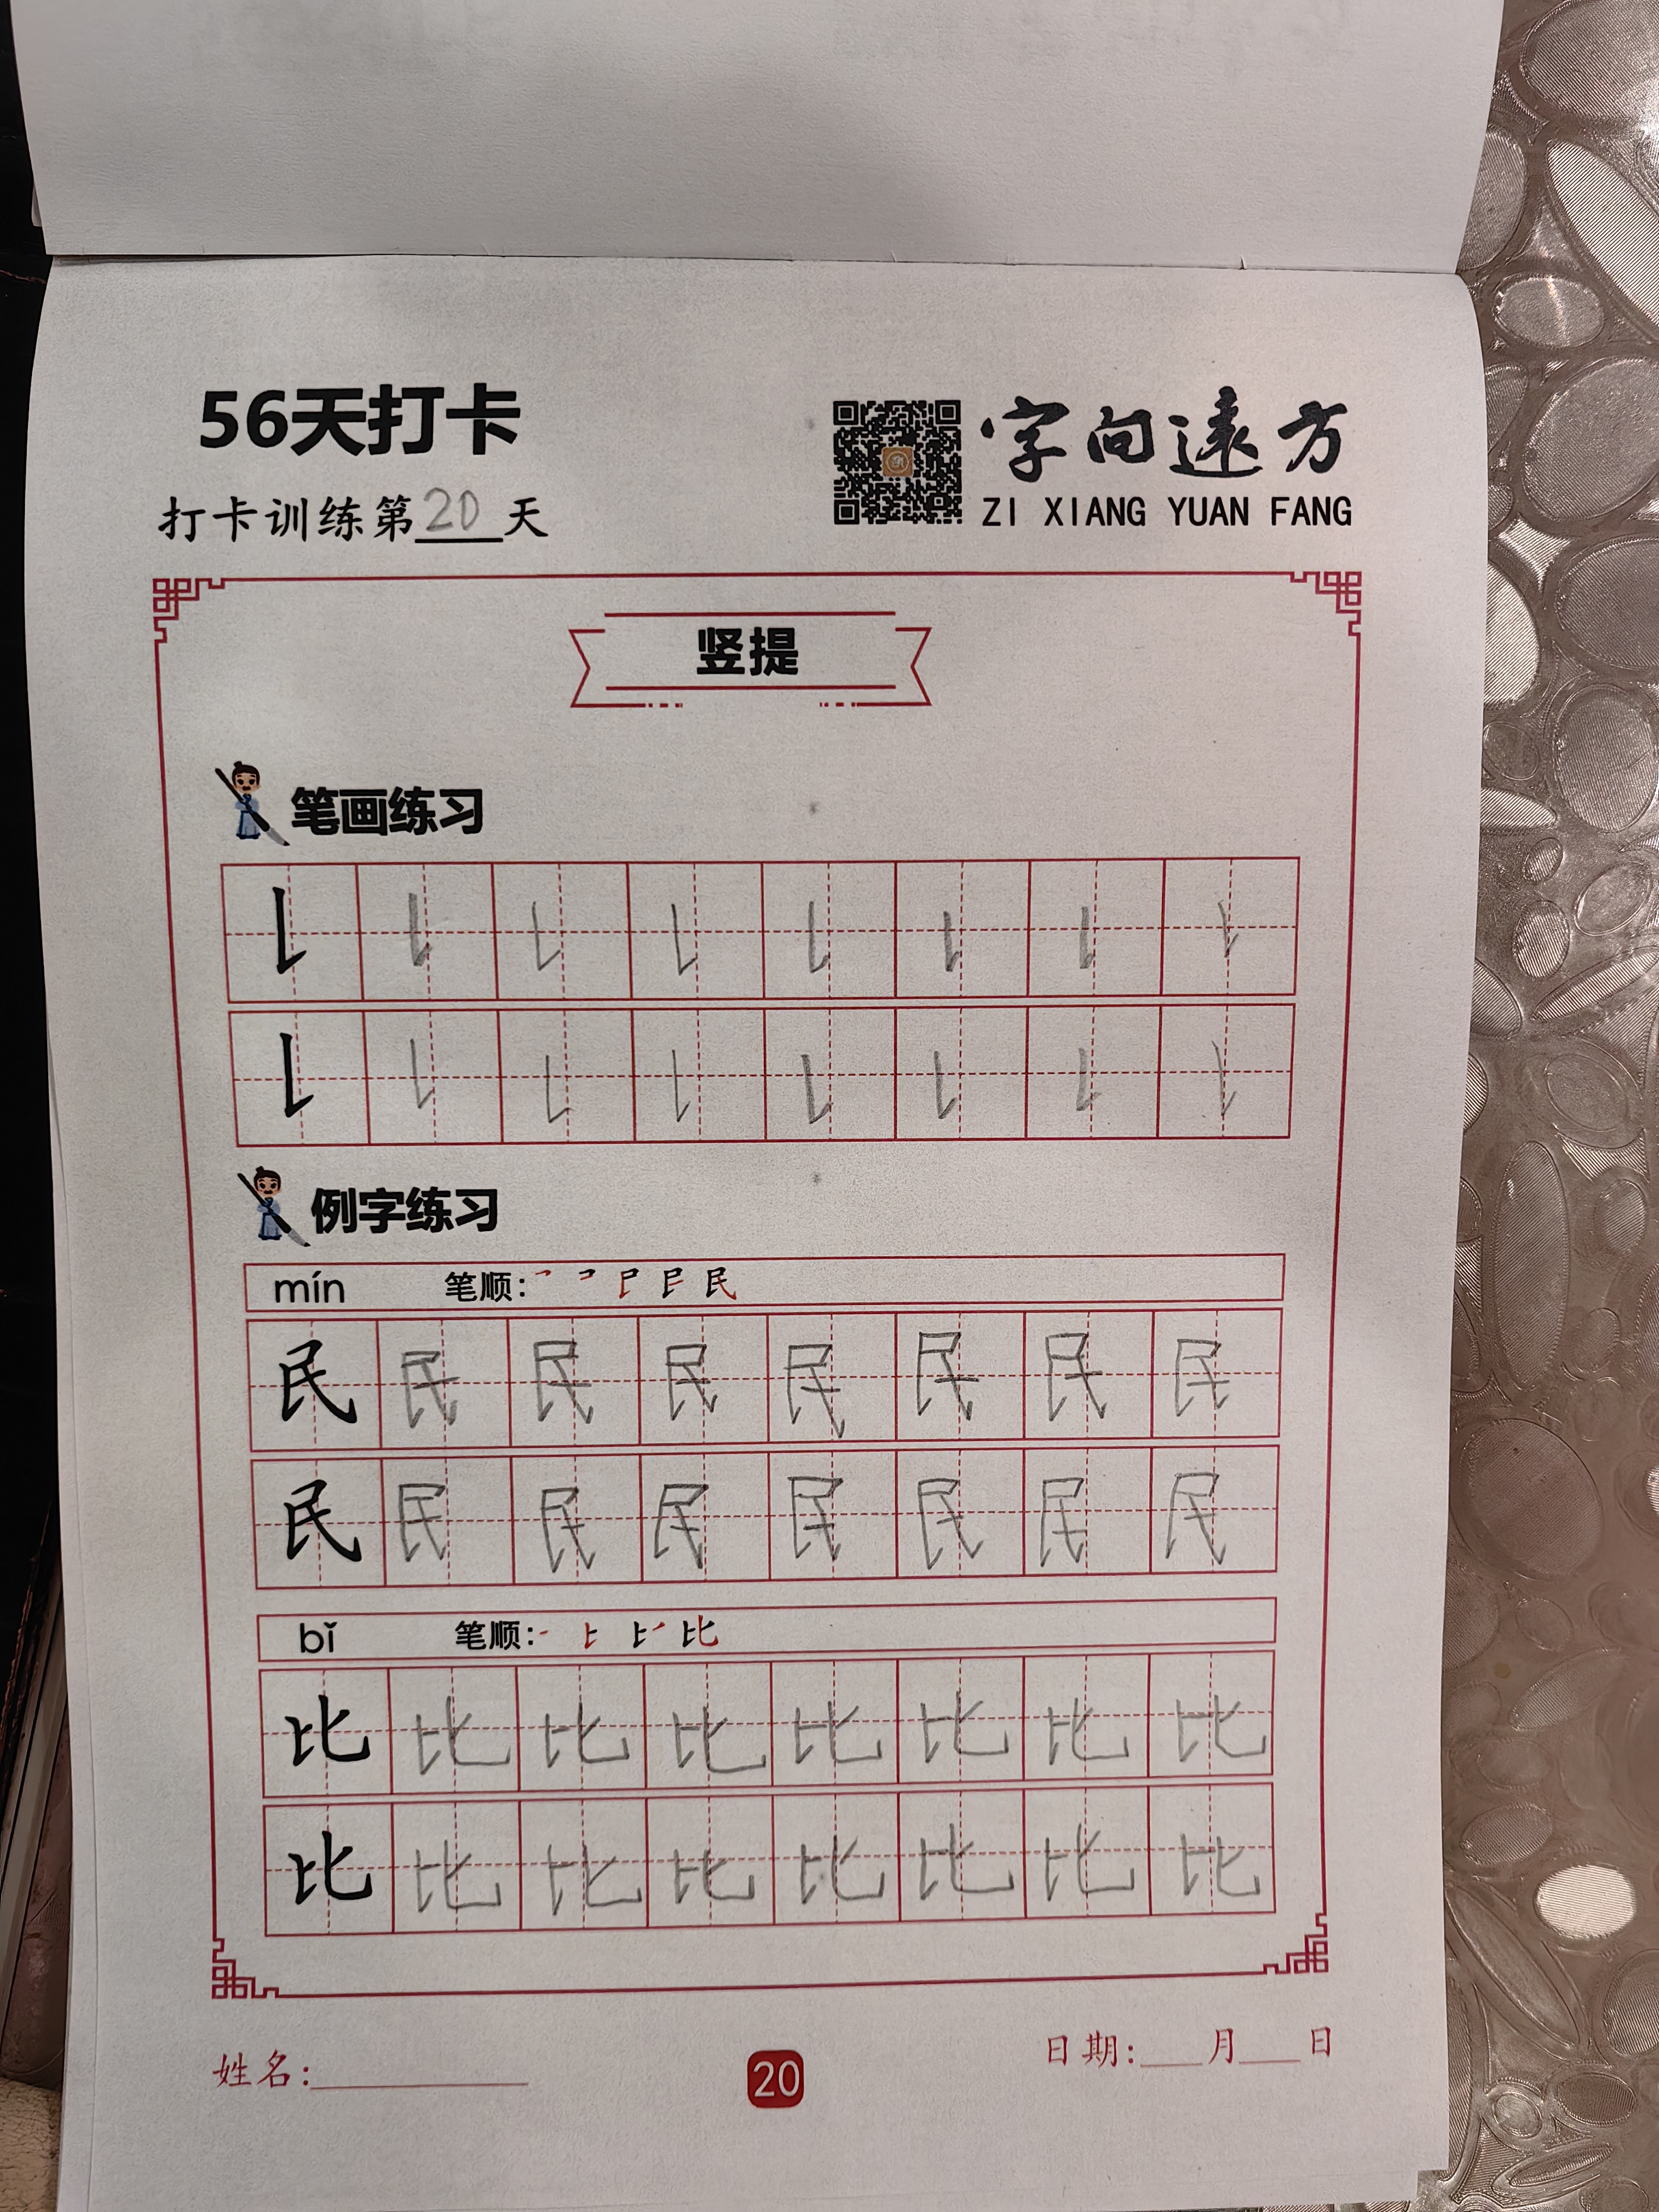 56天打卡
字向遠方
打卡训练第20天
ZI XIANG YUAN FANG
竖提
笔画练习
㇙ ㇙ ㇙ ㇙ ㇙ ㇙ ㇙ ㇙
㇙ ㇙ ㇙ ㇙ ㇙ ㇙ ㇙ ㇙
例字练习
mín 笔顺:
民 民 民 民 民 民 民 民
民 民 民 民 民 民 民 民
bǐ 笔顺:
比 比 比 比 比 比 比 比
比 比 比 比 比 比 比 比
姓名:
20
日期:___月___日